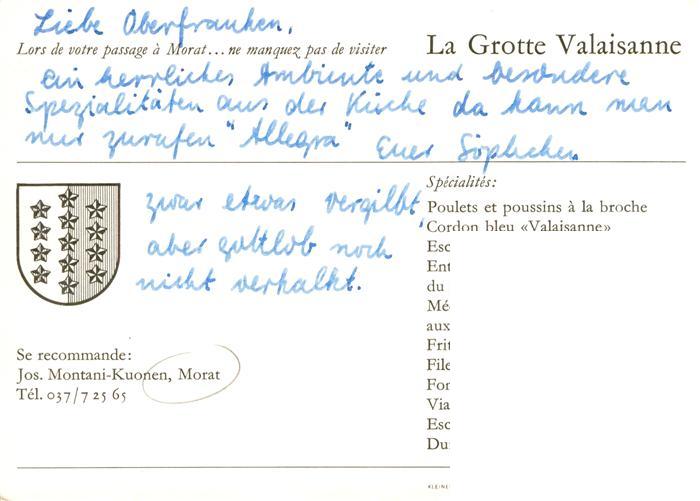 Liebe Oberfranken,
Lors de votre passage à Morat... ne manquez pas de visiter
La Grotte Valaisanne
ein herrliches Ambiente und besondere
Spezialitäten aus der Küche da kann man
nur zurufen "Allegra" Euer
zwar etwas vergilbt,
aber gottlob noch
nicht verkalkt.
Spécialités:
Poulets et poussins à la broche
Cordon bleu «Valaisanne»
Esc
Ent
du
Mé
aux
Frit
File
For
Via
Esc
Du
Se recommande:
Jos. Montani-Kuonen, Morat
Tél. 037/7 25 65
KLEINE